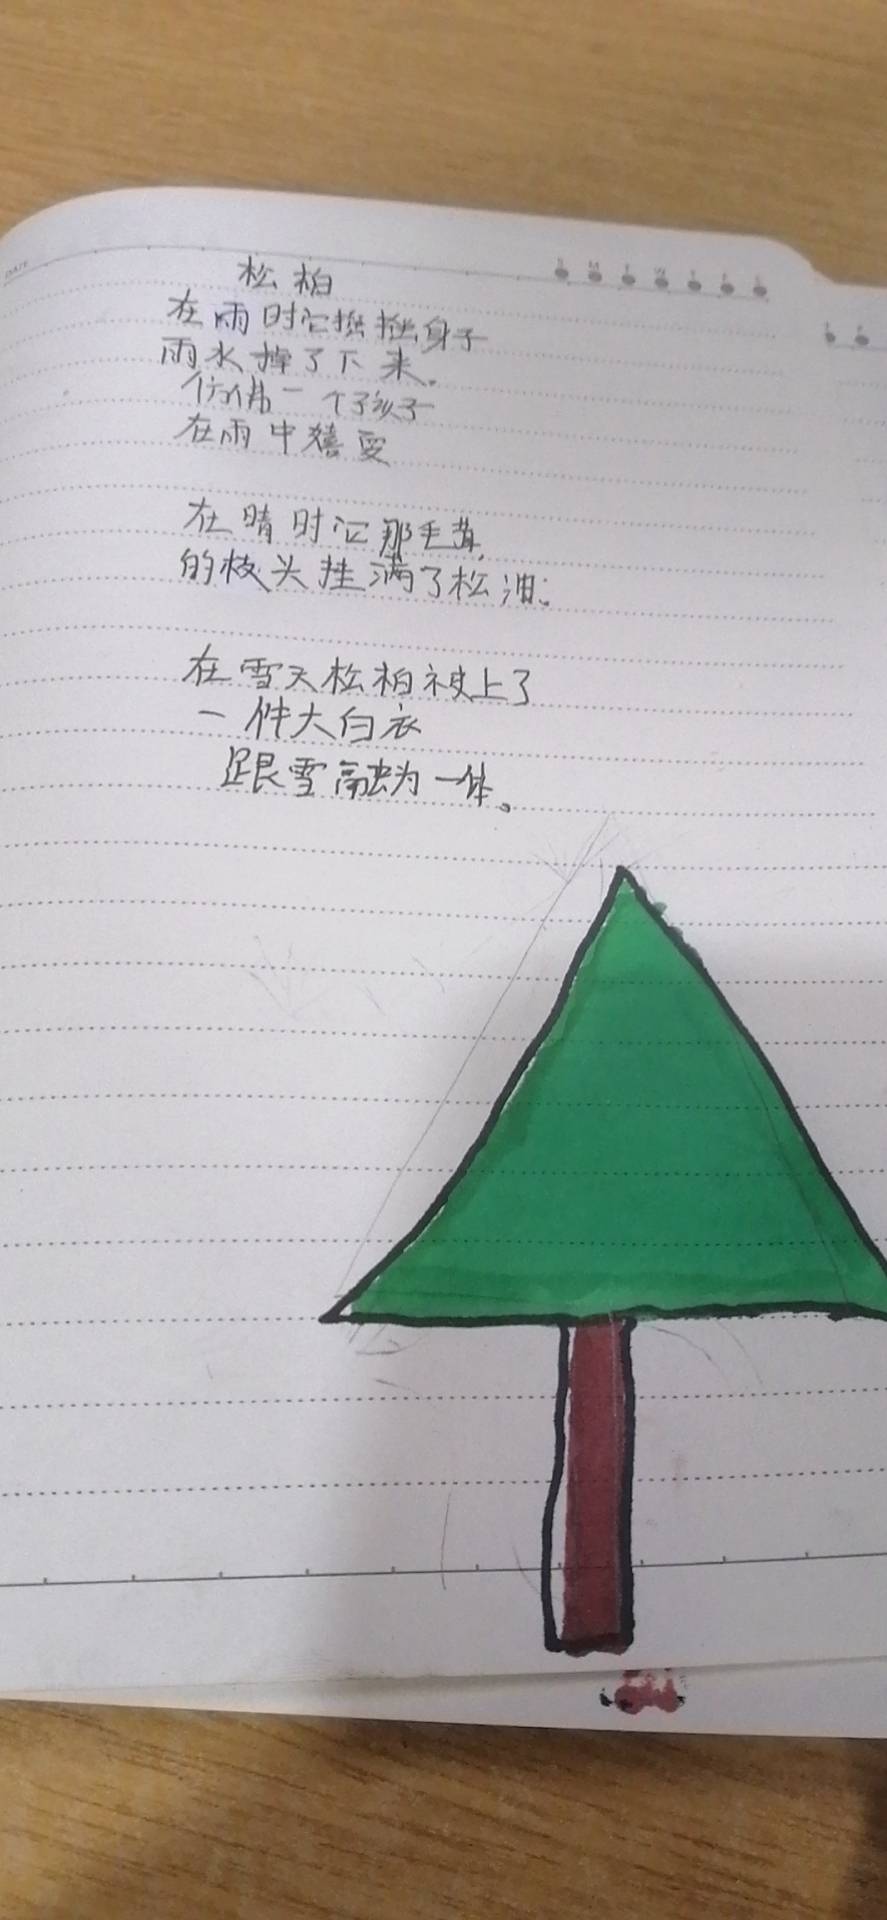 DATE
S M T W T F S
松柏
在雨时它摇摇身子
雨水掉了下来。
仿佛一个孩子
在雨中嬉耍
在晴时它那毛茸
的枝头挂满了松油。
在雪天松柏被上了
一件大白衣
跟雪融为一体。